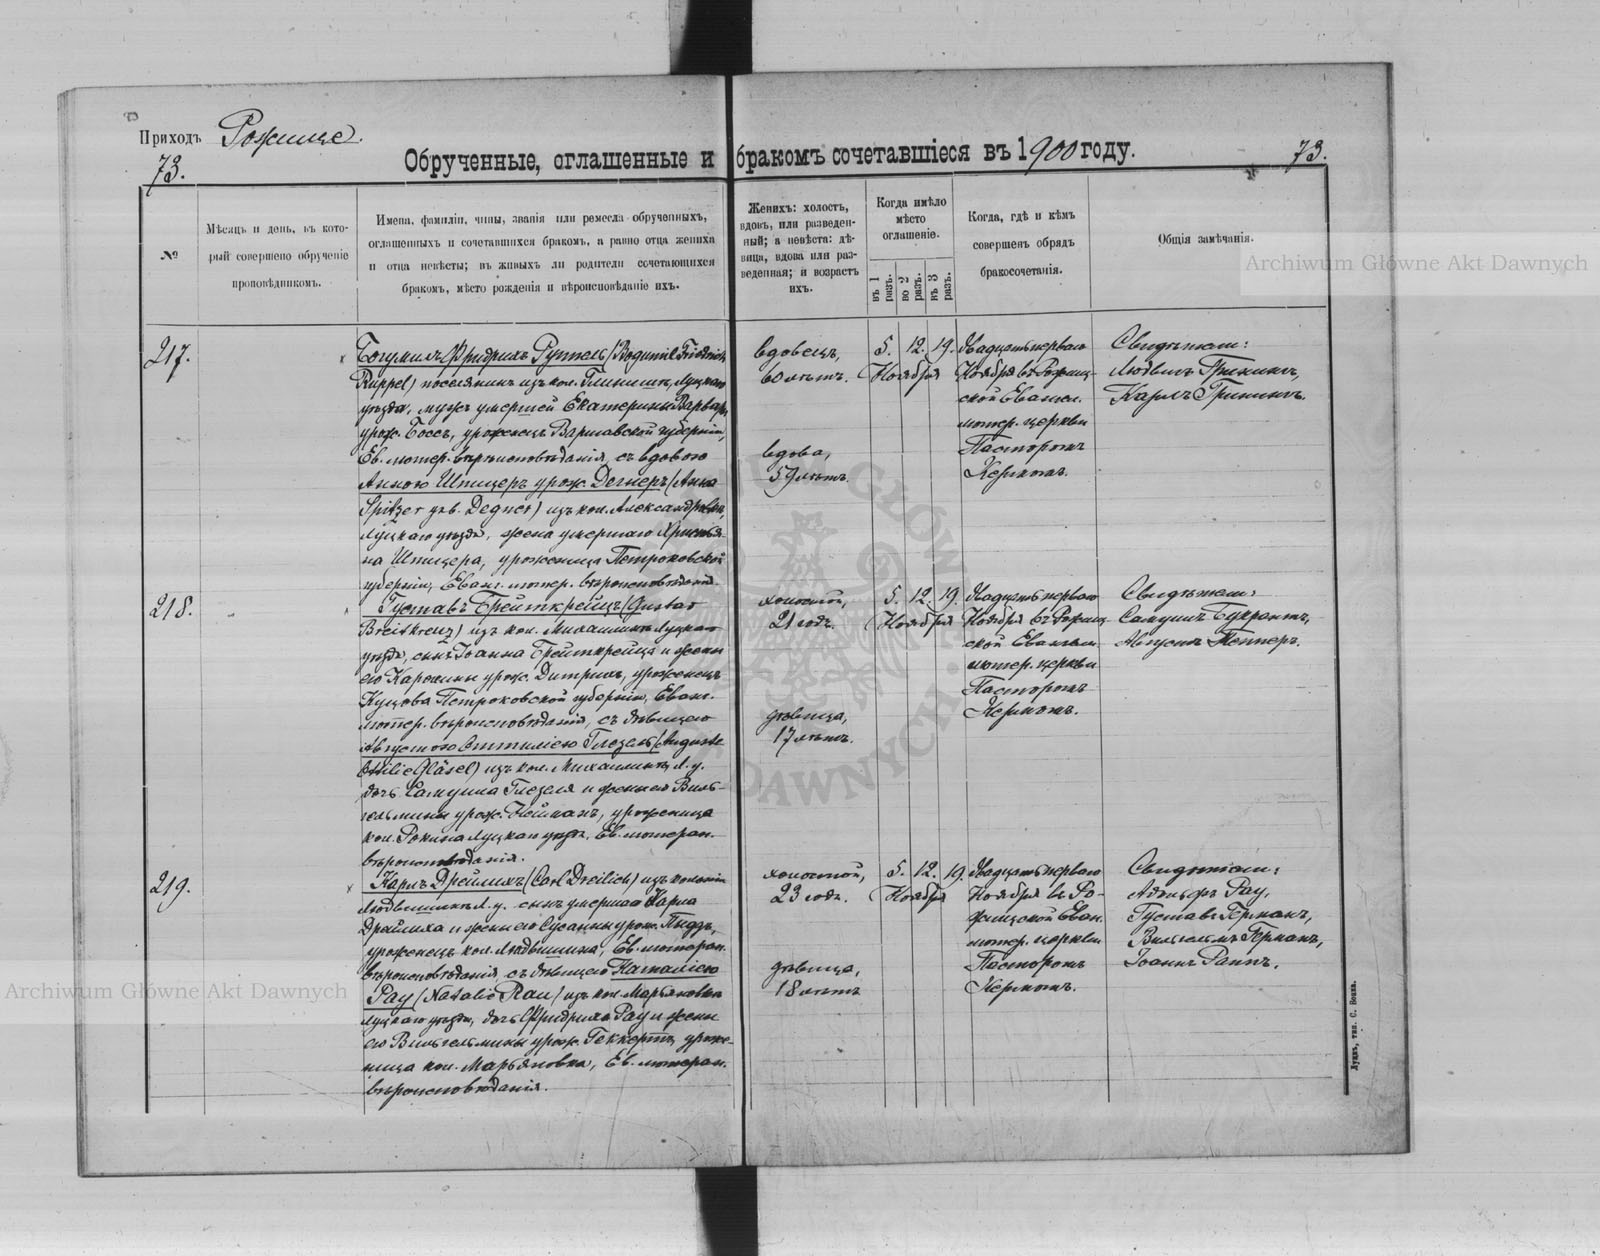 Приходъ Рожище.
73.
Обрученные, оглашенные и бракомъ сочетавшіеся въ 1900 году.
73.
№
Мѣсяцъ и день, въ кото-
рый совершено обрученіе
проповѣдникомъ.
Имена, фамиліи, чины, званія или ремесла обрученныхъ,
оглашенныхъ и сочетавшихся бракомъ, а равно отца жениха
и отца невѣсты; въ живыхъ ли родители сочетающихся
бракомъ, мѣсто рожденія и вѣроисповѣданіе ихъ.
Женихъ: холостъ,
вдовъ, или разведен-
ный; а невѣста: дѣ-
вица, вдова или раз-
веденная; и возрастъ
ихъ.
Когда имѣло
мѣсто
оглашеніе.
въ 1 разъ.
во 2 разъ.
въ 3 разъ.
Когда, гдѣ и кѣмъ
совершенъ обрядъ
бракосочетанія.
Общія замѣчанія.
Archiwum Główne Akt Dawnych
217.
Богумилъ Фридрихъ Руппель (Bogumil Friedrich
Ruppel) поселянинъ изъ кол. Глинищъ, Луцкаго
уѣзда, мужъ умершей Екатерины Варвары
урож. Боссъ, уроженецъ Варшавской губерніи,
Ев. лютер. вѣроисповѣданія, съ вдовою
Анною Шпицеръ урож. Дегнеръ (Anna
Spitzer geb. Degner) изъ кол. Александровки,
Луцкаго уѣзда, жена умершаго Христья-
на Шпицера, уроженица Петроковской
губерніи, Еван. лютер. вѣроисповѣданія.
вдовецъ,
60 лѣтъ.
вдова,
57 лѣтъ.
5. 12. 19.
Ноября
Двадцать перваго
Ноября въ Рожищ-
ской Евангел.
лютер. церкви
Пасторомъ
Керномъ.
Свидѣтели:
Людвигъ Гринингъ,
Карлъ Гринингъ.
218.
Густавъ Брейткрейцъ (Gustav
Breitkreuz) изъ кол. Михайлинъ Луцкаго
уѣзда, сынъ Іоанна Брейткрейца и жены
его Каролины урож. Дитрихъ, уроженецъ
Петроковской губерніи, Еванг.
лютер. вѣроисповѣданія, съ дѣвицею
Августою Оттиліею Глезель (Auguste
Ottilie Gläsel) изъ кол. Михайлинъ, Л. у.
дочь Самуила Глезеля и жены его Виль-
гельмины урож. Нейманъ, уроженица
кол. Луцкаго уѣзда, Ев. лютеран.
вѣроисповѣданія.
холостой,
21 годъ.
дѣвица,
17 лѣтъ.
5. 12. 19.
Ноября
Двадцать перваго
Ноября въ Рожищ-
ской Евангел.
лютер. церкви
Пасторомъ
Керномъ.
Свидѣтели:
Самуилъ
Августъ
219.
Карлъ Дрейлихъ (Carl Dreilich) изъ колоніи
Людвишинъ Л. у. сынъ умершаго Карла
Драйлиха и жены его Сусанны урож.
уроженецъ кол. Людвишина, Ев. лютеран.
вѣроисповѣданія съ дѣвицею Наталіею
Рау (Natalie Rau) изъ кол. Марьяновки
Луцкаго уѣзда, дочь Фридриха Рау и жены
его Вильгельмины урож. Геккертъ, уроже-
ница кол. Марьяновка, Ев. лютеран.
вѣроисповѣданія.
холостой,
23 года.
дѣвица,
18 лѣтъ
5. 12. 19.
Ноября
Двадцать перваго
Ноября въ Ро-
жищской Еван.
лютер. церкви
Пасторомъ
Керномъ.
Свидѣтели:
Адольфъ Рау,
Густавъ Германъ,
Вильгельмъ Германъ,
Іоаннъ Раппъ.
Archiwum Główne Akt Dawnych
Луцкъ, тип. С. Бонка.